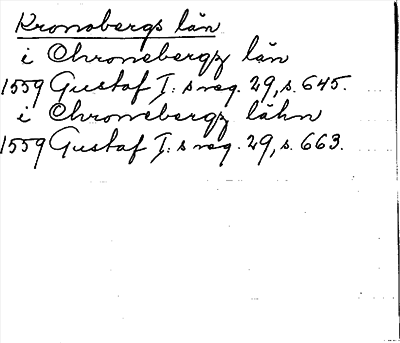 Kronobergs län
i Chronebergz län
1559 Gustaf I:s reg. 29, s. 645.
i Chronebergz lähn
1559 Gustaf I:s reg. 29, s. 663.